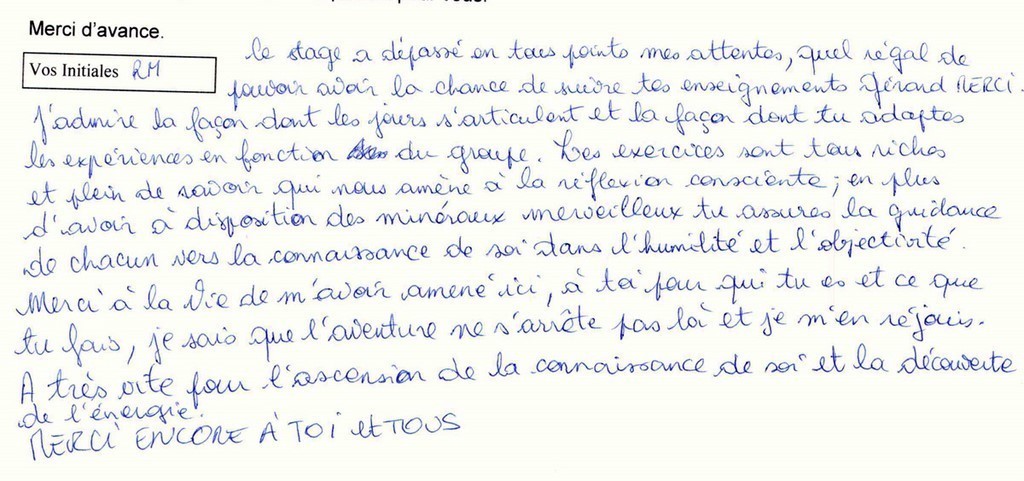 Merci d'avance.
Vos Initiales RM
le stage a dépassé en tous points mes attentes, quel régal de
pouvoir avoir la chance de suivre tes enseignements Gérard MERCI.
J'admire la façon dont les jours s'articulent et la façon dont tu adaptes
les expériences en fonction du groupe. Les exercices sont tous riches
et plein de savoir qui nous amène à la réflexion consciente, en plus
d'avoir à disposition des minéraux merveilleux tu assures la guidance
de chacun vers la connaissance de soi dans l'humilité et l'objectivité.
Merci à la Vie de m'avoir amené ici, à toi pour qui tu es et ce que
tu fais, je sais que l'aventure ne s'arrête pas là et je m'en réjouis.
A très vite pour l'ascension de la connaissance de soi et la découverte
de l'énergie.
MERCI ENCORE À TOI et TOUS